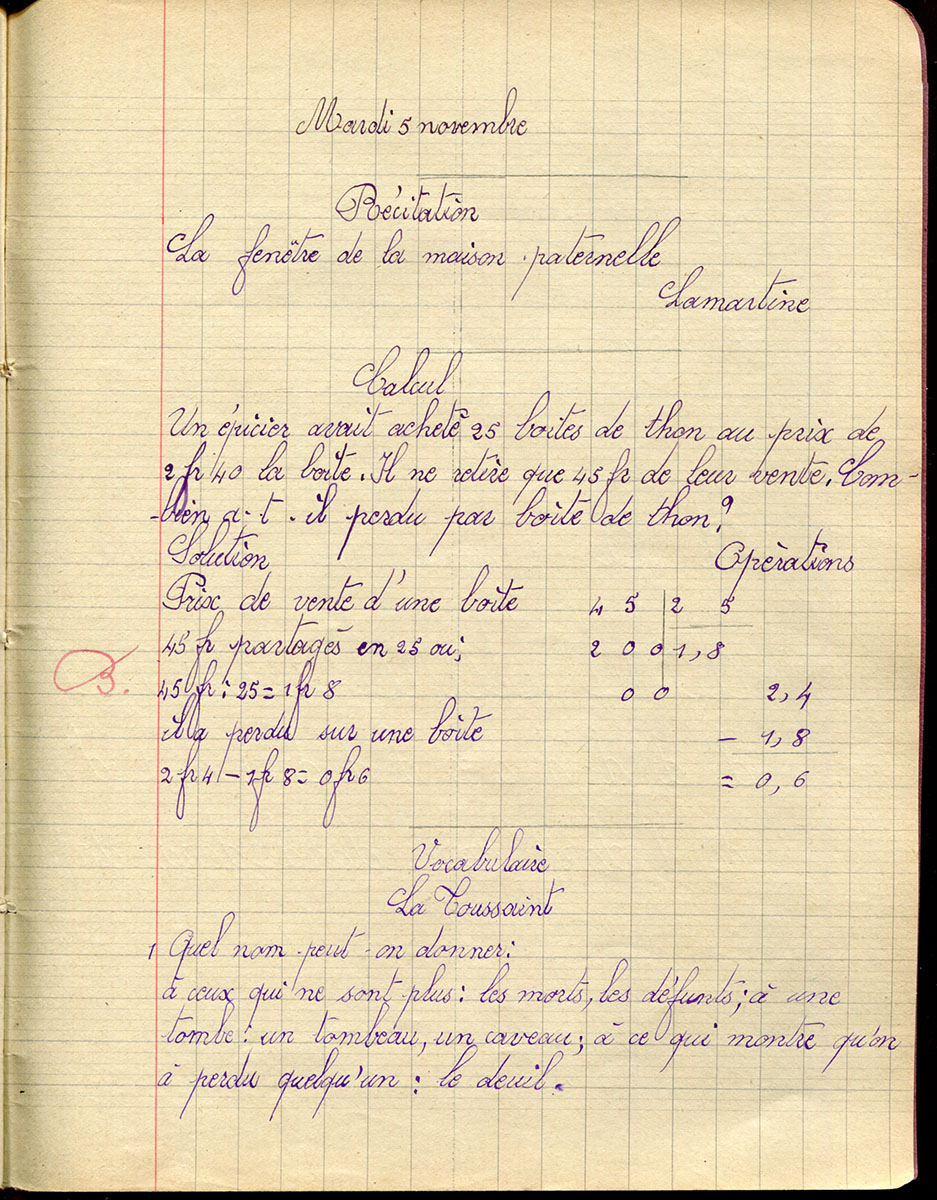 Mardi 5 novembre
Récitation
La fenêtre de la maison paternelle
Lamartine
Calcul
Un épicier avait acheté 25 boîtes de thon au prix de
2 fr 40 la boîte. Il ne retire que 45 fr de leur vente. Com-
-bien a-t-il perdu par boîte de thon ?
Solution Opérations
Prix de vente d'une boîte 4 5 2 5
45 fr partagés en 25 ou ; 2 0 0 1,8
B.
45 fr : 25 = 1 fr 8 0 0 2,4
il a perdu sur une boîte - 1,8
2 fr 4 - 1 fr 8 = 0 fr 6 = 0,6
Vocabulaire
La Toussaint
1 Quel nom peut-on donner :
à ceux qui ne sont plus : les morts, les défunts ; à une
tombe : un tombeau, un caveau ; à ce qui montre qu'on
à perdu quelqu'un : le deuil.